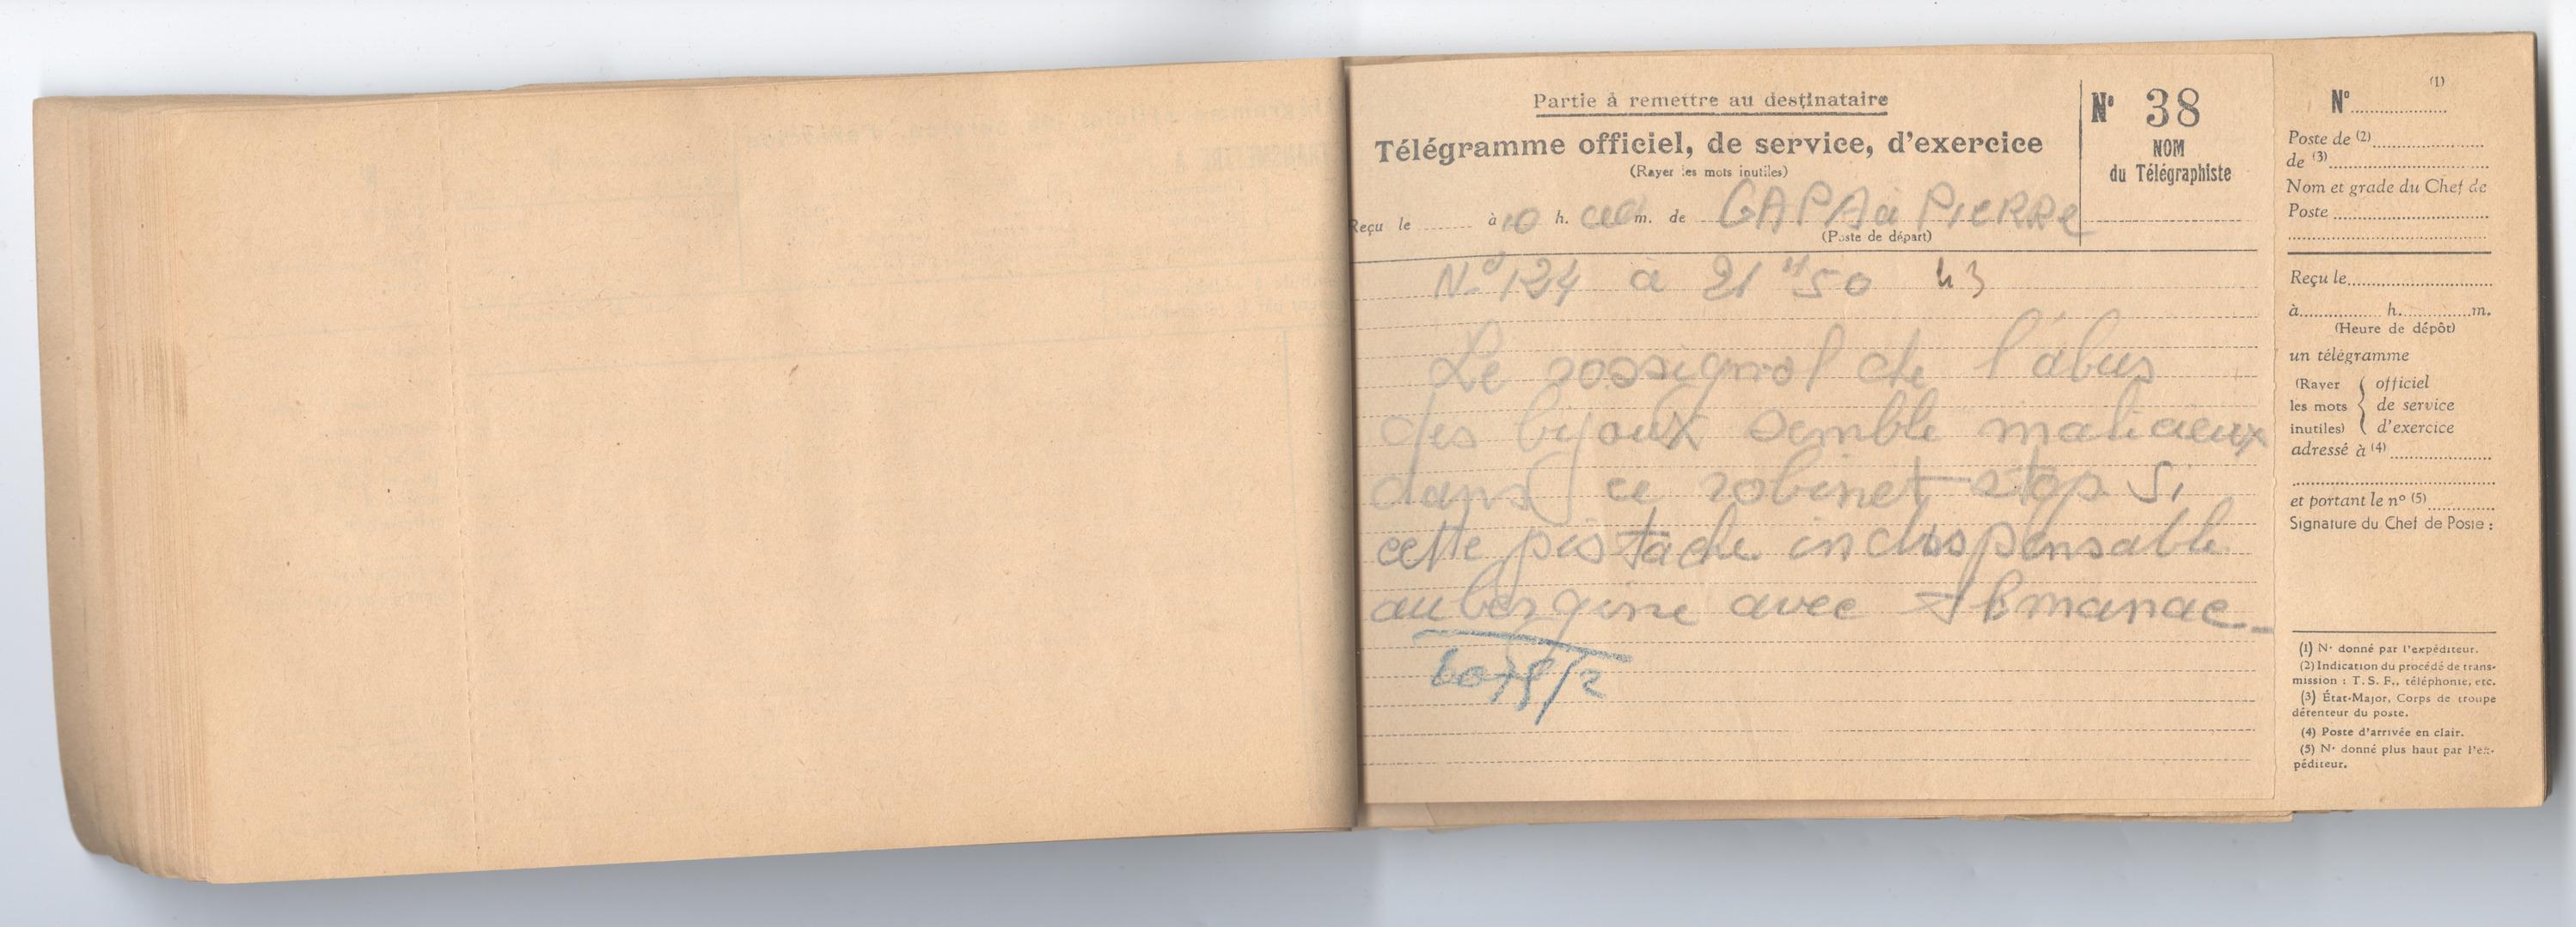 Partie à remettre au destinataire
Télégramme officiel, de service, d'exercice
(Rayer les mots inutiles)
Reçu le ........ à 10 h. m. de GAPA à PIERRE
(Poste de départ)
N° 38
NOM
du Télégraphiste
N° 124 à 21 H 50 43
Le rossignol de l'abus
des bijoux semble malicieux
dans ce robinet stop Si
cette pistache indispensable
aubergine avec Almanac
N° (1)
Poste de (2)
de (3)
Nom et grade du Chef de
Poste
Reçu le
à h. m.
(Heure de dépôt)
un télégramme
(Rayer les mots inutiles) { officiel
de service
d'exercice
adressé à (4)
et portant le n° (5)
Signature du Chef de Poste :
(1) N° donné par l'expéditeur.
(2) Indication du procédé de trans-
mission : T. S. F., téléphonie, etc.
(3) État-Major, Corps de troupe
détenteur du poste.
(4) Poste d'arrivée en clair.
(5) N° donné plus haut par l'ex-
péditeur.